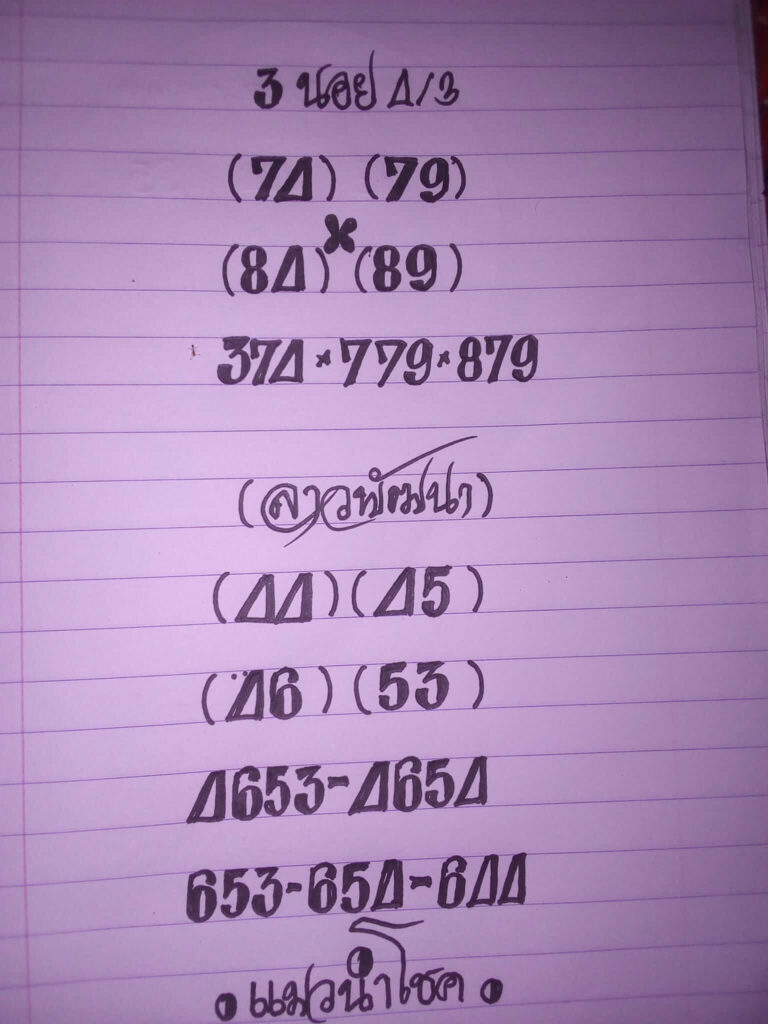 3 น้อย 4/3
(74) (79)
×
(84) (89)
374×779×879
(ลาวพัฒนา)
(44)(45)
(46)(53)
4653-4654
653-654-644
•แมวนำโชค•